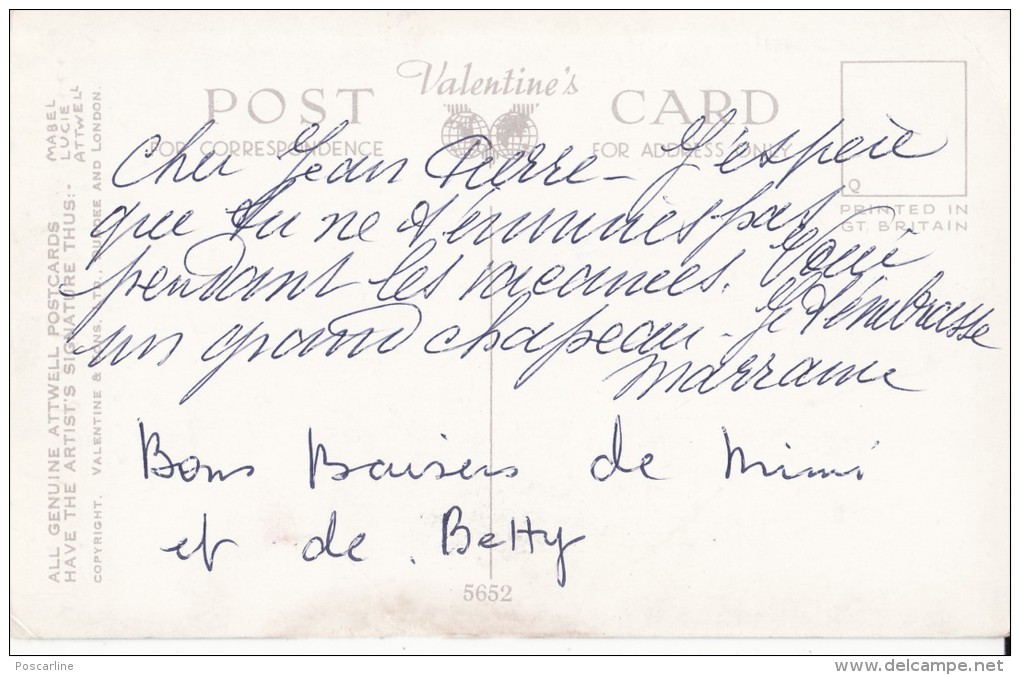 Valentine's
POST CARD
FOR CORRESPONDENCE FOR ADDRESS ONLY
Q
PRINTED IN
GT. BRITAIN
Cher Jean Pierre - J'espère
que tu ne t'ennuies pas
pendant les vacances. Voici
un grand chapeau - Je t'embrasse
Marraine
Bons Baisers de Mimi
et de Betty
5652
ALL GENUINE ATTWELL POSTCARDS
HAVE THE ARTIST'S SIGNATURE THUS:-
MABEL
LUCIE
ATTWELL
COPYRIGHT. VALENTINE & SONS, LTD., DUNDEE AND LONDON.
Poscarline
www.delcampe.net